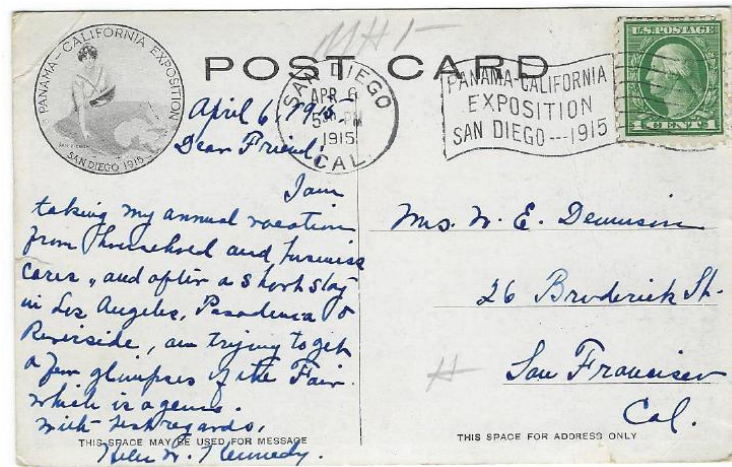 PANAMA-CALIFORNIA EXPOSITION
SAN DIEGO 1915
POST CARD
SAN DIEGO
APR 6
5 PM
1915
CAL.
PANAMA-CALIFORNIA
EXPOSITION
SAN DIEGO---1915
U.S. POSTAGE
1 CENT 1
April 6, 1915
Dear Friend:
I am
taking my annual vacation
from household and business
cares, and after a short stay
in Los Angeles, Pasadena &
Riverside, am trying to get
a few glimpses of the Fair.
which is a gem.
With best regards,
Helen M. Kennedy.
THIS SPACE MAY BE USED FOR MESSAGE
Mrs. W. E. Dennison
26 Broderick St.
San Francisco
Cal.
THIS SPACE FOR ADDRESS ONLY